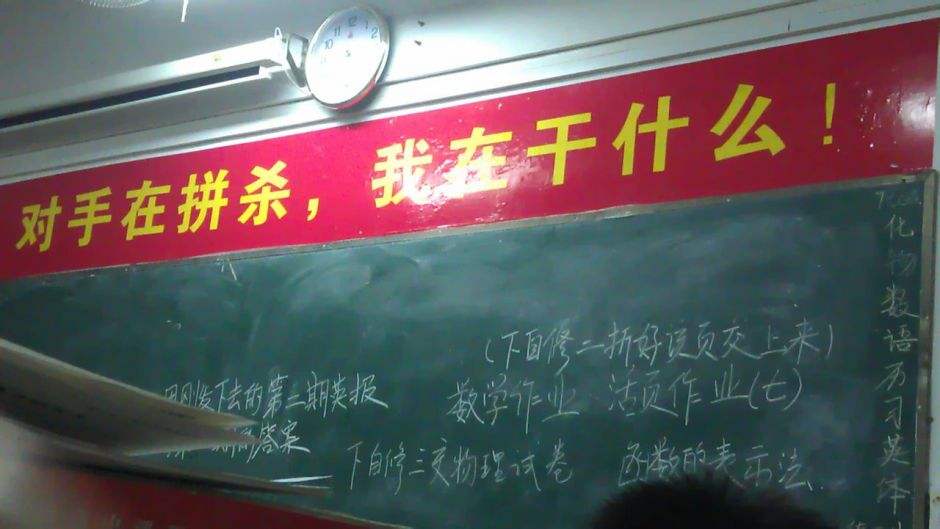 对手在拼杀，我在干什么！
(下自修二折好该页交上来)
刚发下去的第二期英报 数学作业 活页作业(七)
答案
下自修三交物理试卷 函数的表示法
化
物
数
语
历
习
英
体